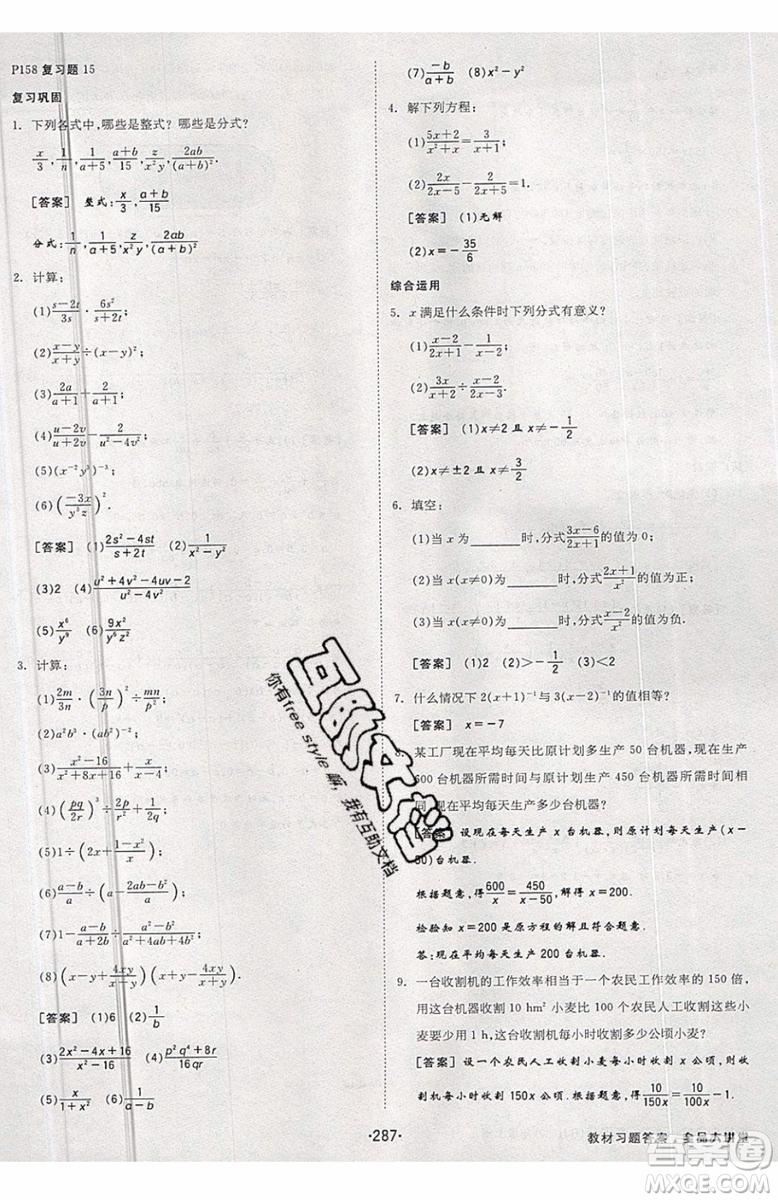 P158复习题15
复习巩固
1. 下列各式中,哪些是整式?哪些是分式?
x/3, 1/n, 1/(a+5), (a+b)/15, z/(x²y), 2ab/(a+b)².
[答案] 整式: x/3, (a+b)/15
分式: 1/n, 1/(a+5), z/(x²y), 2ab/(a+b)².
2. 计算:
(1) (s-2t)/(3s) · 6s²/(s+2t);
(2) (x-y)/(x+y) ÷(x-y)²;
(3) 2a/(a+1) + 2/(a+1);
(4) (u-2v)/(u+2v) - 2/(u²-4v²);
(5)(x⁻²y³)⁻³;
(6)(-3x/(y³z))².
[答案] (1) (2s²-4st)/(s+2t) (2) 1/(x²-y²)
(3)2 (4) (u²+4v²-4uv-2)/(u²-4v²)
(5) x⁶/y⁹ (6) 9x²/(y⁶z²)
3. 计算:
(1) 2m/(3n) · (3n/p)² ÷ mn/p²;
(2)a²b³·(ab²)⁻²;
(3) (x²-16)/(x²+8x+16) + x/(x-4);
(4) (pq/2r)³ ÷ 2p/r² + 1/(2q);
(5)1÷(2x+(1-x²)/x);
(6) (a-b)/a ÷(a-(2ab-b²)/a);
(7)1-(a-b)/(a+2b) ÷ (a²-b²)/(a²+4ab+4b²);
(8)(x-y+4xy/(x-y))(x+y-4xy/(x+y)).
[答案] (1)6 (2) 1/b
(3) (2x²-4x+16)/(x²-16) (4) (p²q⁴+8r)/(16qr)
(5) x/(1+x²) (6) 1/(a-b)
(7) -b/(a+b) (8)x²-y²
4. 解下列方程:
(1) (5x+2)/(x²+x) = 3/(x+1);
(2) 2x/(2x-5) - 2/(2x+5) =1.
[答案] (1)无解
(2)x=-35/6
综合运用
5. x满足什么条件时下列分式有意义?
(1) (x-2)/(2x+1) - 1/(x-2);
(2) 3x/(x+2) ÷ (x-2)/(2x-3).
[答案] (1)x≠2且x≠-1/2
(2)x≠±2且x≠3/2
6. 填空:
(1)当x为______时,分式(3x-6)/(2x+1)的值为0;
(2)当x(x≠0)为______时,分式(2x+1)/x²的值为正;
(3)当x(x≠0)为______时,分式(x-2)/x²的值为负.
[答案] (1)2 (2)>-1/2 (3)<2
7. 什么情况下2(x+1)⁻¹与3(x-2)⁻¹的值相等?
[答案] x=-7
某工厂现在平均每天比原计划多生产50台机器,现在生产
600台机器所需时间与原计划生产450台机器所需时间相
同,现在平均每天生产多少台机器?
[答案] 设现在每天生产x台机器,则原计划每天生产(x-
50)台机器.
根据题意,得600/x=450/(x-50),解得x=200.
检验知x=200是原方程的解且符合题意.
答:现在平均每天生产200台机器.
9. 一台收割机的工作效率相当于一个农民工作效率的150倍,
用这台机器收割10 hm²小麦比100个农民人工收割这些小
麦要少用1 h,这台收割机每小时收割多少公顷小麦?
[答案] 设一个农民人工收割小麦每小时收割x公顷,则
收割机每小时收割小麦150x公顷,根据题意,得10/(150x)=10/(100x)
·287·
教材习题答案 全品大讲堂
互助文档
你有free style嘛,我有互助文档
作业精灵
MXQE.COM